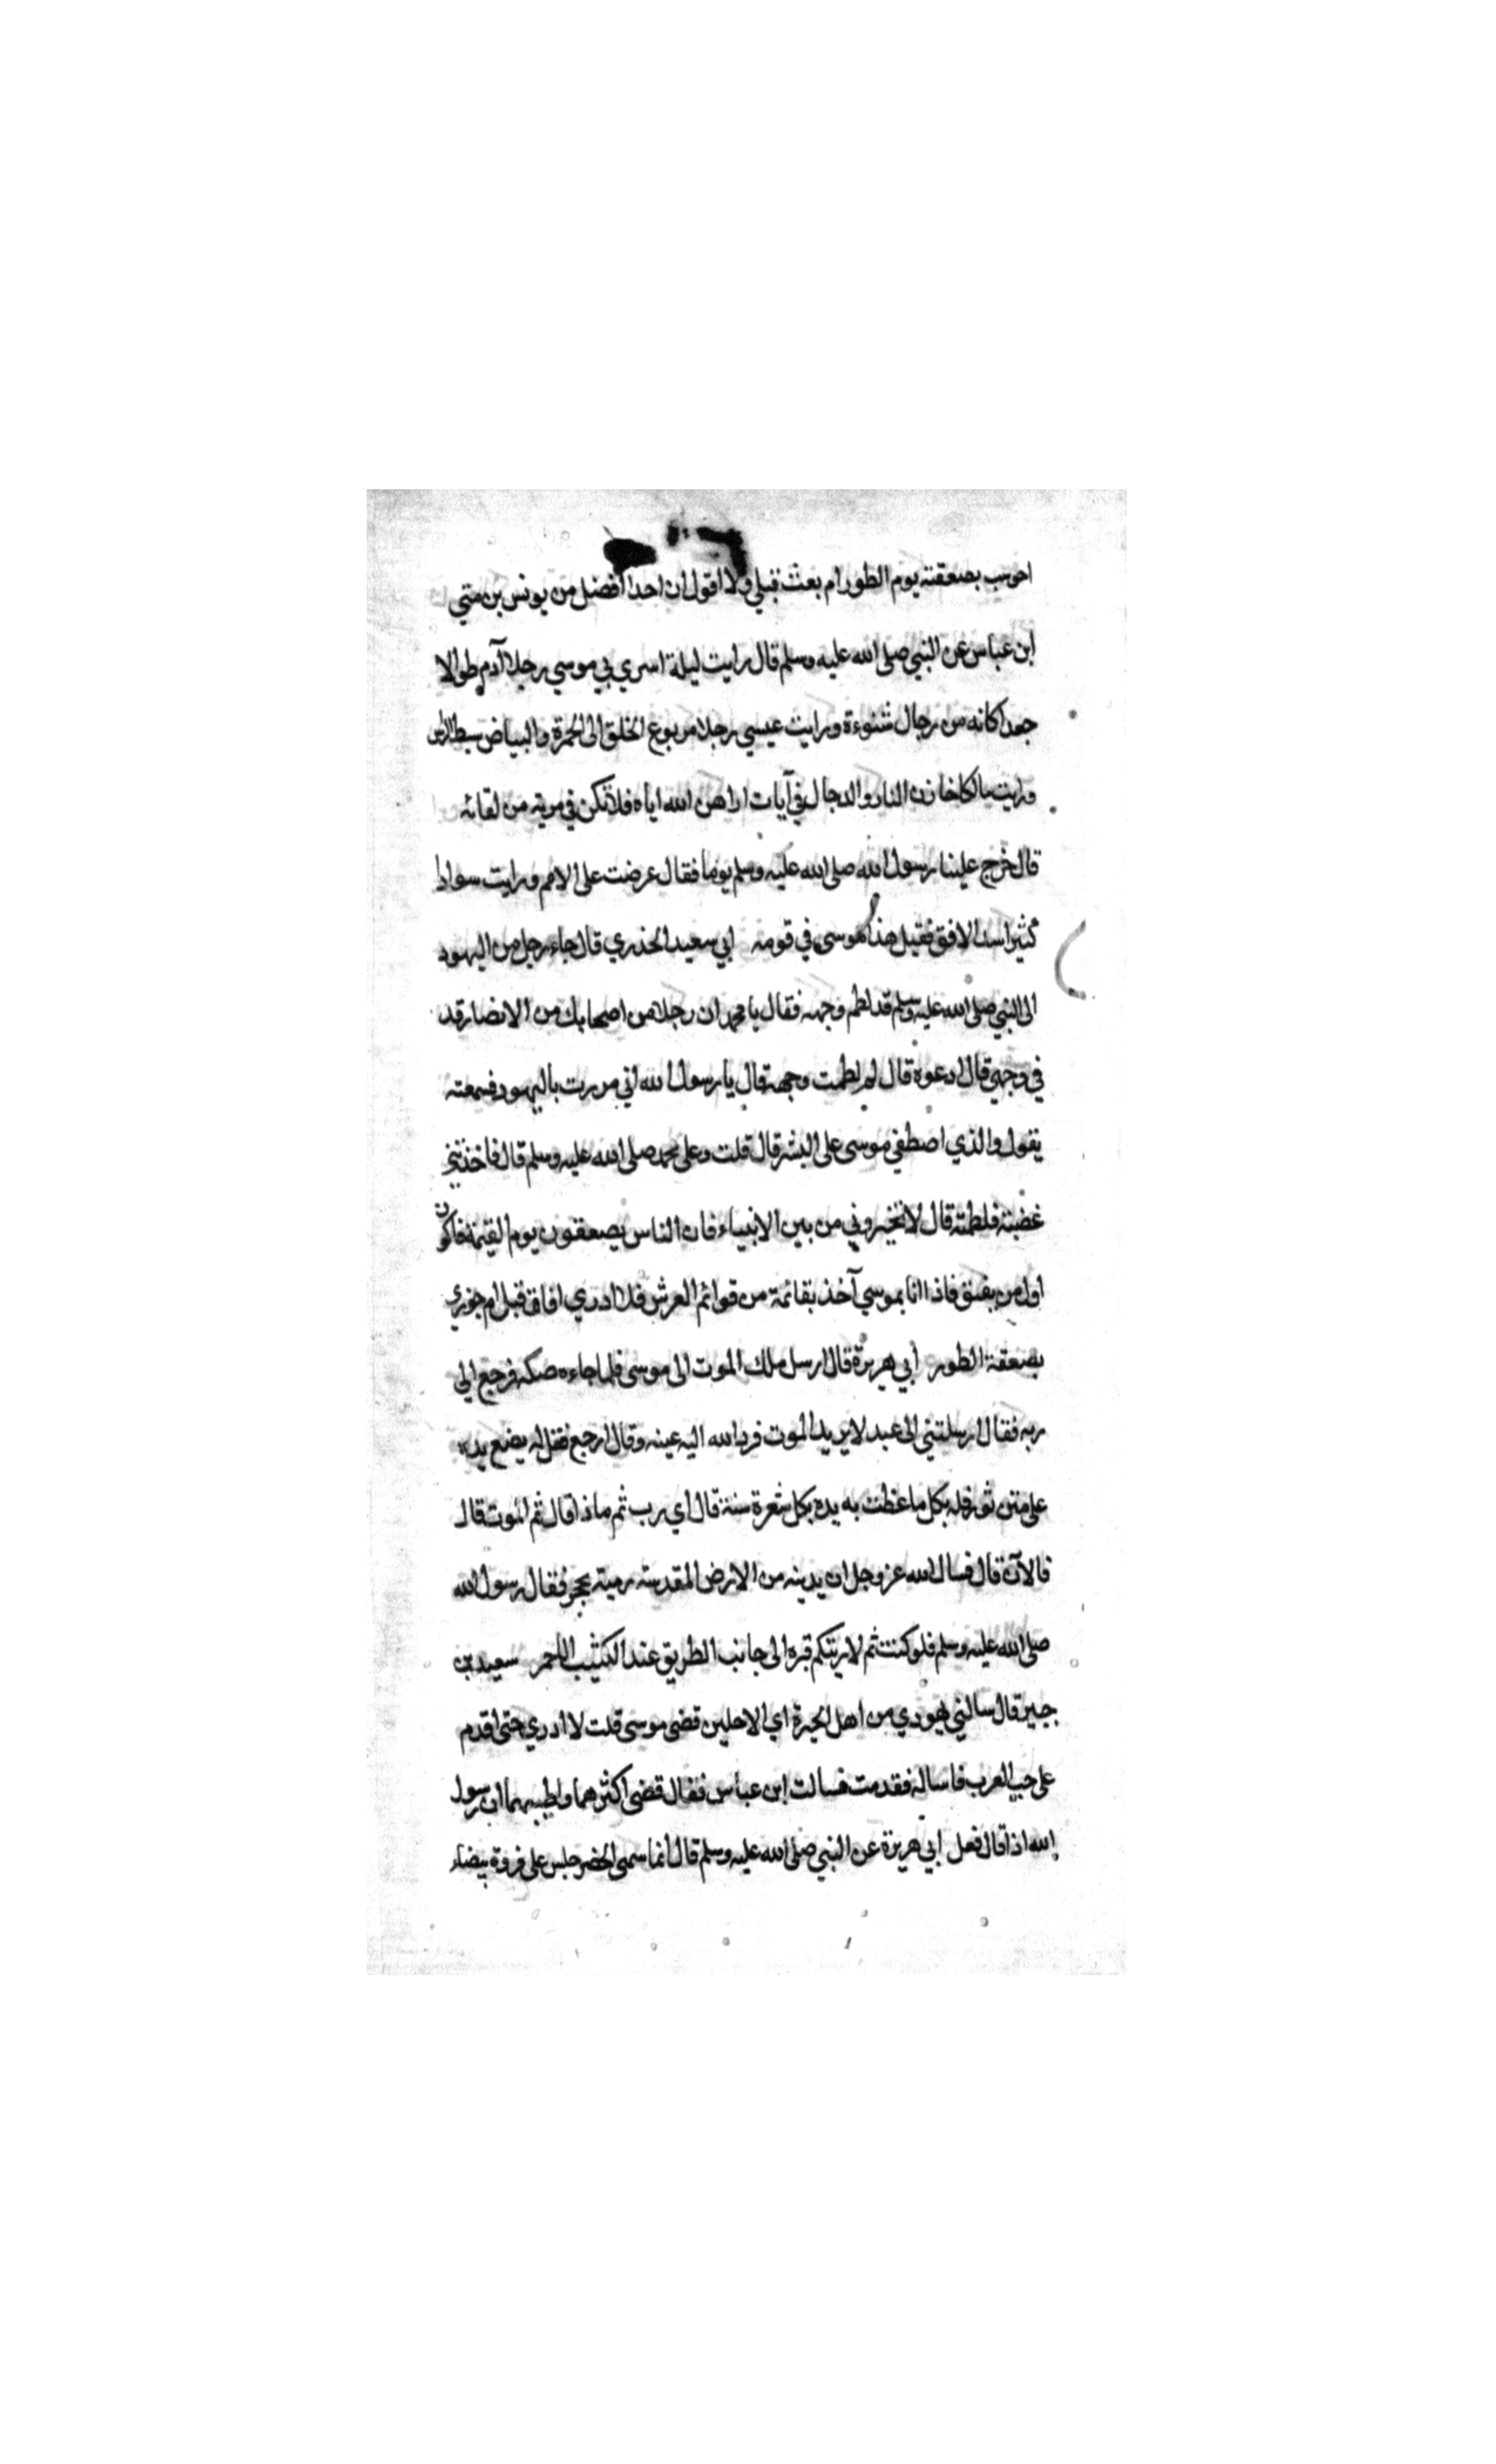 احوسب بصعقته يوم الطور ام بعث قبلي ولا اقول ان احدا افضل من يونس بن متي
ابن عباس عن النبي صلى الله عليه وسلم قال رايت ليلة اسري بي موسي رجلا آدم طوالا
جعدا كانه من رجال شنوءة ورايت عيسي رجلا مربوع الخلق الى الحمرة والبياض سبط الراس
ورايت مالكا خازن النار والدجال في آيات اراهن الله اياه فلا تكن في مرية من لقائه
قال خرج علينا رسول الله صلى الله عليه وسلم يوما فقال عرضت على الامم ورايت سوادا
كثيرا سد الافق فقيل هذا موسى في قومه ابي سعيد الخذري قال جاء رجل من اليهود
الى النبي صلى الله عليه وسلم قد لطم وجهه فقال يا محمد ان رجلا من اصحابك من الانصار قد
في وجهي قال ادعوه قال لم لطمت وجهه قال يا رسول الله اني مررت باليهود فسمعته
يقول والذي اصطفي موسى على البشر قال قلت وعلى محمد صلى الله عليه وسلم قال فاخذتني
غضبة فلطمته قال لا تخيروني من بين الانبياء فان الناس يصعقون يوم القيمة فاكون
اول من يفيق فاذا انا بموسي آخذ بقائمة من قوائم العرش فلا ادري افاق قبل ام جوزي
بصعقة الطور ابي هريرة قال ارسل ملك الموت الى موسى فلما جاءه صكه فرجع الي
ربه فقال ارسلتني الى عبد لا يريد الموت فرد الله اليه عينه وقال ارجع فقل له يضع يده
على متن ثور فله بكل ما غطت به يده بكل شعرة سنة قال اي رب ثم ماذا قال ثم الموت قال
فالآن قال فسال الله عز وجل ان يدينه من الارض المقدسة رمية بحجر فقال رسول الله
صلى الله عليه وسلم فلو كنت ثم لاريتكم قبره الى جانب الطريق عند الكثيب الاحمر سعيد بن
جبير قال سالني يهودي من اهل الحيرة اي الاجلين قضى موسى قلت لا ادري حتى اقدم
على حبر العرب فاساله فقدمت فسالت ابن عباس فقال قضى اكثرهما واطيبهما ان رسول
الله اذا قال فعل ابي هريرة عن النبي صلى الله عليه وسلم قال انما سمى الخضر جلس على فروة بيضاء